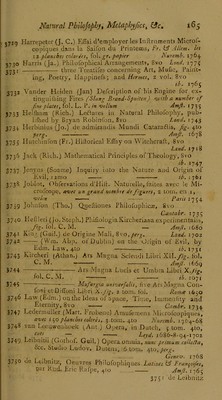 Natural Philosophy, Metaphysics, &c. 165
3729 Harrepeter (J. C.) Essai d'employer les Instruments Micros-
copiques dans la Saison du Printems, Fr. & Allem. les
12 planches colorées, fol. gr. papier Nuremb. 1764
3730 Harris (Ja.) Philosophical Arrangements, 8vo Lond. 1775
3731 —— Three Treatises concerning Art, Music, Paint-
ing, Poetry, Happiness; and Hermes, 2 vol. 8vo
ib. 1765
3732 Vander Helden (Jan) Description of his Engine for ex-
tinguishing Fires (Slang Brand-Spuiten) with a number of
fine plates, fol. L. P. in vellum Amst. 1735
3733 Helsham (Rich.) Lectures in Natural Philosophy, pub-
lished by Bryan Robinson, 8vo Lond. 1743
3734 Herbotus (Jo.) de admirandis Mundi Cataractis, fig. 4to
perg. Amst. 1678
3735 Hutchinson (Fr.) Historical Essay on Witchcraft, 8vo
Lond. 1718
3736 Jack (Rich.) Mathematical Principles of Theology, 8vo
ib. 1747
3737 Jenyns (Soame) Inquiry into the Nature and Origin of
Evil, 12mo ib. 1761
3738 Joblot, Observations d'Hist. Naturelle, faites avec le Mi-
croscope, avec un grand nombre de figures, 2 tom. en 1,
Paris 1754
3739 Johnson (Tho.) Quæstiones Philosophicæ, 8vo
Cantabr. 1735
3740 Kestleri (Jo. Steph.) Phisiologia Kircheriana experimentalis,
fig. fol. C. M. Amst. 1680
3741 King (Guil.) de Origine Mali, 8vo, perg. Lond. 1702
3742 —— (Wm. Abp. of Dublin) on the Origin of Evil, by
Edm. Law, 4to ib. 1731
3743 Kircheri (Athan.) Ars Magna Sciendi Libri XII. fig. fol.
C. M. Amst. 1669
3744 —— Ars Magna Lucis et Umbra Libri X. fig.
fol. C. M. ib. 1671
3745 —— Musurgia universalis, sive Ars Magna Con-
soni et Dissoni Libri X. fig. 2 tom. fol. Romæ 1650
3746 Law (Edm.) on the Ideas of Space, Time, Immensity and
Eternity, 8vo Cambr. 1734
3747 Ledermuller (Mart. Frobene) Amusemens Microscopiques,
avec 150 planches colorées, 3 tom. 4to Nuremb. 1764-68
3748 van Leeuwenhoek (Ant.) Opera, in Dutch, 5 tom. 4to,
Leyd. 1686-8-94-1702
3749 Leibnitii (Gothof. Guil.) Opera omnia, nunc primum collecta,
&c. Studio Ludov. Dutens, 6 tom. 4to, perg.
Genev. 1768
3750 de Leibnitz, Oeuvres Philosophiques Latines & Françoises,
par Rud. Eric Raspe, 4to Amst. 1765
3751 de Leibnitz